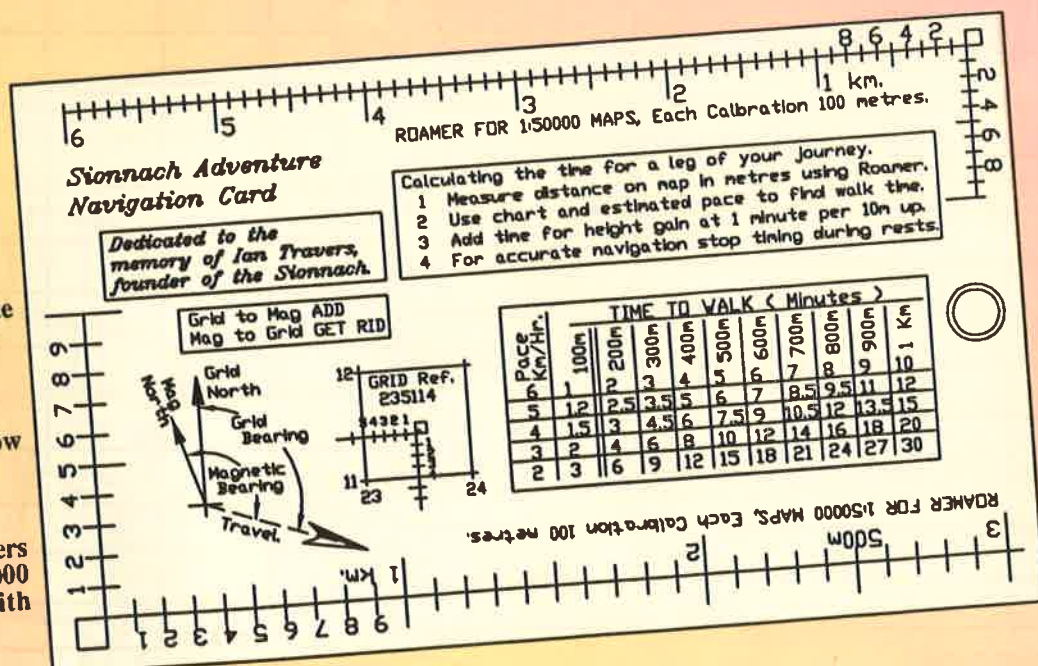 8 6 4 2
6 5 4 3 2 1 km.
ROAMER FOR 1:50000 MAPS, Each Calbration 100 metres.
2 4 6 8
Sionnach Adventure
Navigation Card
Calculating the time for a leg of your journey.
1 Measure distance on map in metres using Roamer.
2 Use chart and estimated pace to find walk time.
3 Add time for height gain at 1 minute per 10m up.
4 For accurate navigation stop timing during rests.
Dedicated to the
memory of Ian Travers,
founder of the Sionnach.
Grid to Mag ADD
Mag to Grid GET RID
Mag North
Grid
North
Grid
Bearing
Magnetic
Bearing
Travel.
12
GRID Ref.
235114
54321
11
23 24
TIME TO WALK ( Minutes )
Pace Km/Hr. 100m 200m 300m 400m 500m 600m 700m 800m 900m 1 Km
6 1 2 3 4 5 6 7 8 9 10
5 1.2 2.5 3.5 5 6 7 8.5 9.5 11 12
4 1.5 3 4.5 6 7.5 9 10.5 12 13.5 15
3 2 4 6 8 10 12 14 16 18 20
2 3 6 9 12 15 18 21 24 27 30
ROAMER FOR 1:50000 MAPS, Each Calbration 100 metres.
3 500m 2 1 km.
9 8 7 6 5 4 3 2 1
1 2 3 4 5 6 7 8 9
ow
ers
000
ith